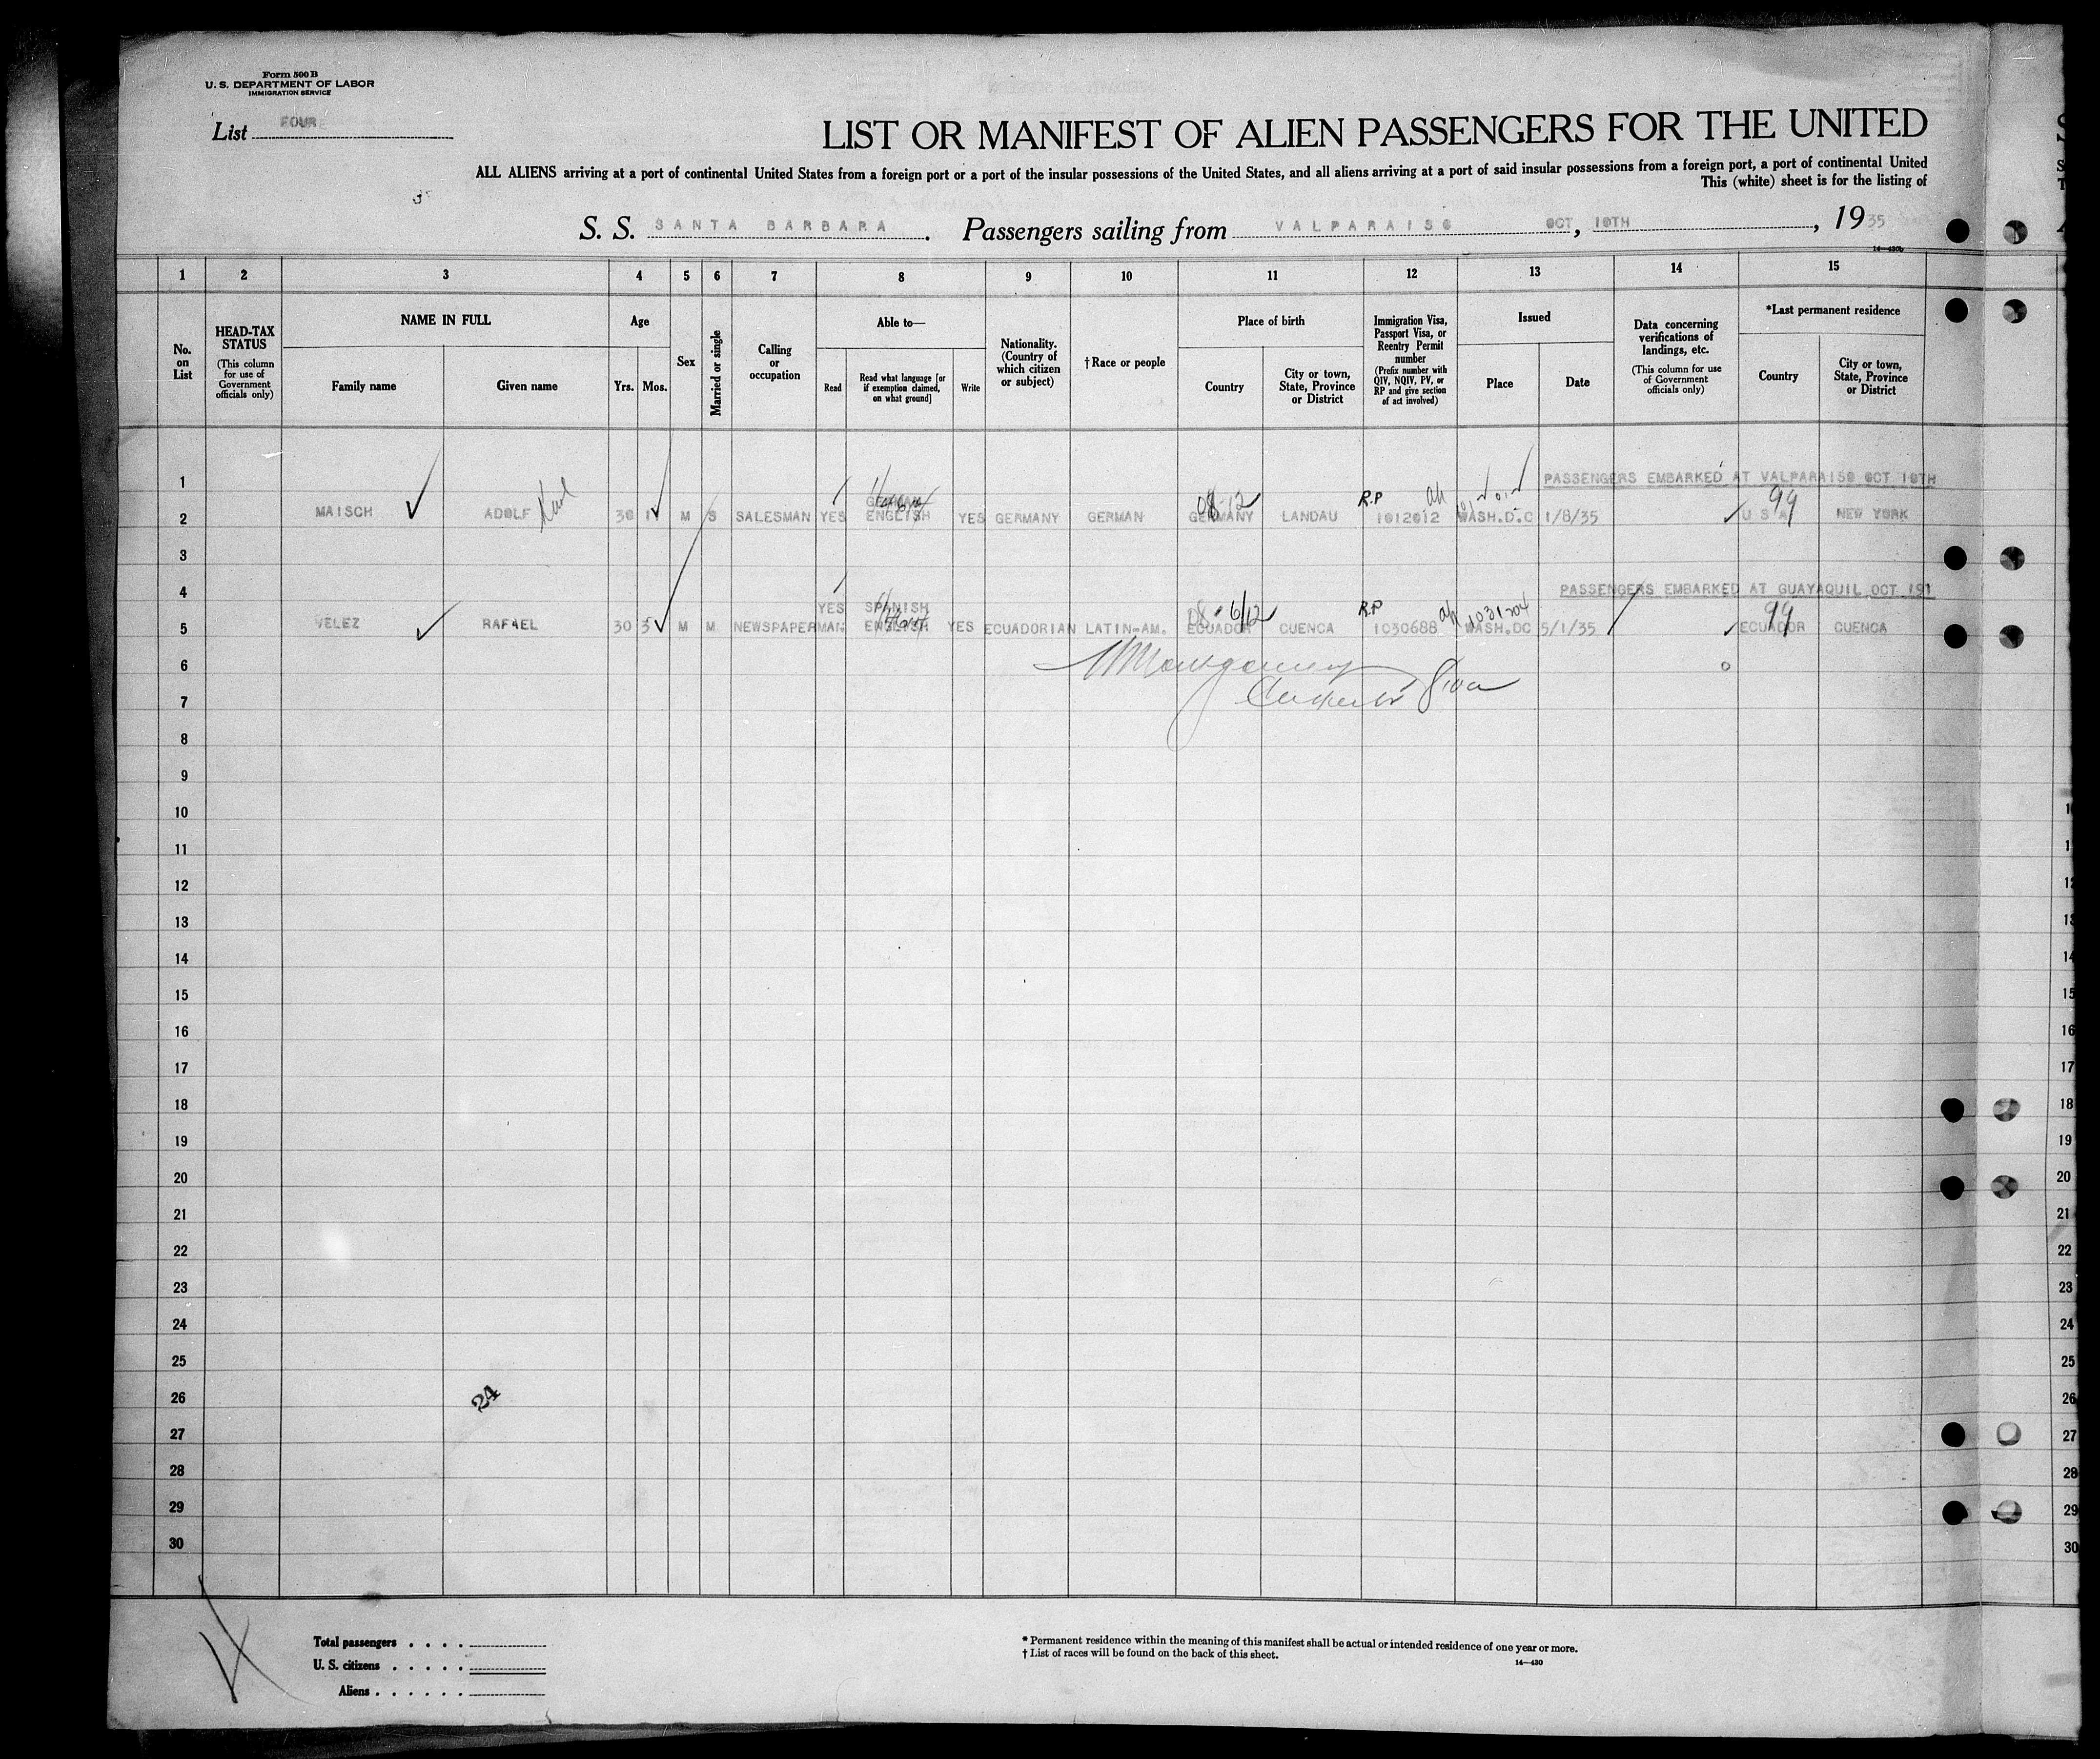 Form 500 B
U. S. DEPARTMENT OF LABOR
IMMIGRATION SERVICE
List FOUR
LIST OR MANIFEST OF ALIEN PASSENGERS FOR THE UNITED
ALL ALIENS arriving at a port of continental United States from a foreign port or a port of the insular possessions of the United States, and all aliens arriving at a port of said insular possessions from a foreign port, a port of continental United
This (white) sheet is for the listing of
S. S. SANTA BARBARA. Passengers sailing from VALPARAISO OCT, 10TH, 1935
1 2 3 4 5 6 7 8 9 10 11 12 13 14 15
No. on List
HEAD-TAX STATUS
(This column for use of Government officials only)
NAME IN FULL
Family name
Given name
Age
Yrs.
Mos.
Sex
Married or single
Calling or occupation
Able to—
Read
Read what language [or if exemption claimed, on what ground]
Write
Nationality. (Country of which citizen or subject)
† Race or people
Place of birth
Country
City or town, State, Province or District
Immigration Visa, Passport Visa, or Reentry Permit number
(Prefix number with QIV, NQIV, PV, or RP and give section of act involved)
Issued
Place
Date
Data concerning verifications of landings, etc.
(This column for use of Government officials only)
*Last permanent residence
Country
City or town, State, Province or District
1 PASSENGERS EMBARKED AT VALPARAISO OCT 10TH
GERMAN R.P 99
2 MAISCH ADOLF Karl 30 M S SALESMAN YES ENGLISH YES GERMANY GERMAN GERMANY LANDAU 1012012 WASH.D.C 1/8/35 U S A NEW YORK
3
4 PASSENGERS EMBARKED AT GUAYAQUIL OCT 191
YES SPANISH R.P 99
5 VELEZ RAFAEL 30 5 M M NEWSPAPERMAN ENGLISH YES ECUADORIAN LATIN-AM. ECUADOR CUENCA 1030688 WASH.DC 5/1/35 ECUADOR CUENCA
6
7
8
9
10
11
12
13
14
15
16
17
18
19
20
21
22
23
24
25
26
27
28
29
30
24
Total passengers
U. S. citizens
Aliens
* Permanent residence within the meaning of this manifest shall be actual or intended residence of one year or more.
† List of races will be found on the back of this sheet.
14—430